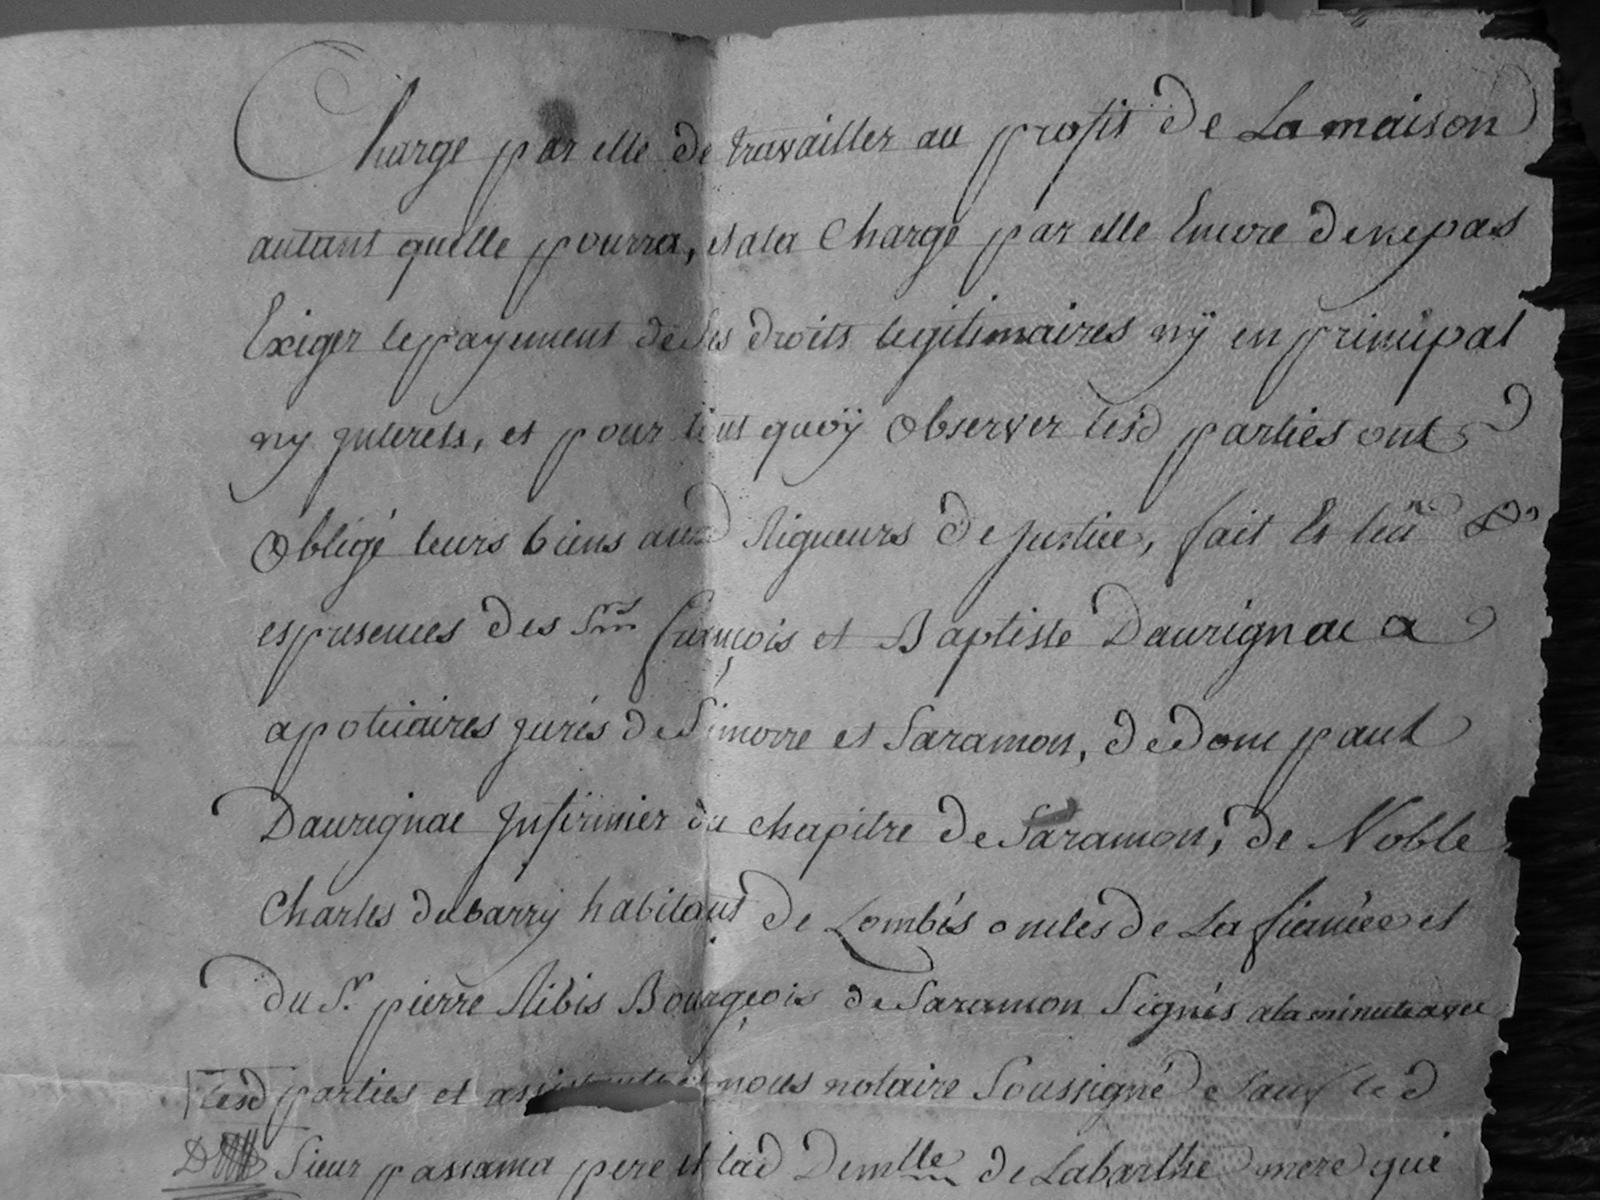 Charge par elle de travailler au profit de La maison
autant quelle pourra, et ala Charge par elle Encore de ne pas
Exiger le payement de Ses droits legitimaires ny en principal
ny jnterets, et pour tout quoÿ Observer lesd parties ont
Obligé leurs biens auxd Rigueurs de justice, fait Et leu
es presences des Srs françois et Baptiste Daurignac
apoticaires jurés de Simorre et Saramon, de dom paul
Daurignac jnfirmier du chapitre de Saramon, de Noble
Charles dubarry habitant de Lombés oncles de La fiancée et
du Sr. pierre Ribis Bourgeois de Saramon Signés ala minute avec
lesd parties et nous notaire Soussigné Sauf led
Sieur passama pere et lad Demlle de Labarthe mere qui